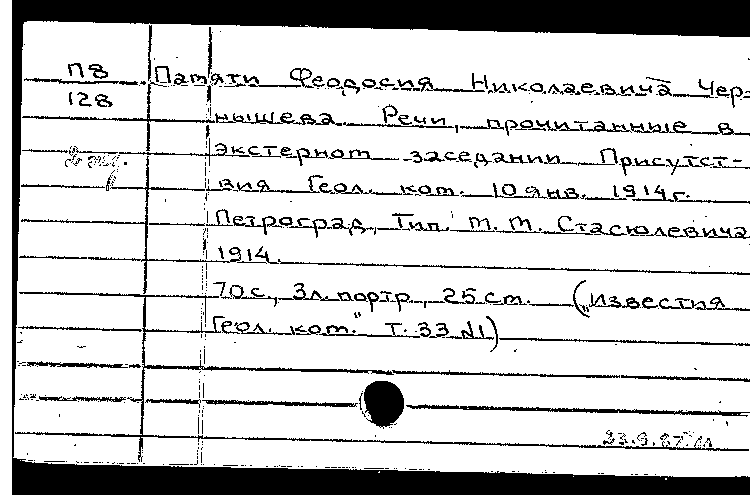 П8
128
2 экз.
Памяти Феодосия Николаевича Чер-
нышева. Речи, прочитанные в
экстерном заседании Присутст-
вия Геол. ком. 10 янв. 1914г.
Петроград, Тип. М. М. Стасюлевича
1914.
70 с., 3л. портр., 25 см. („Известия
Геол. ком." Т. 33 №1)